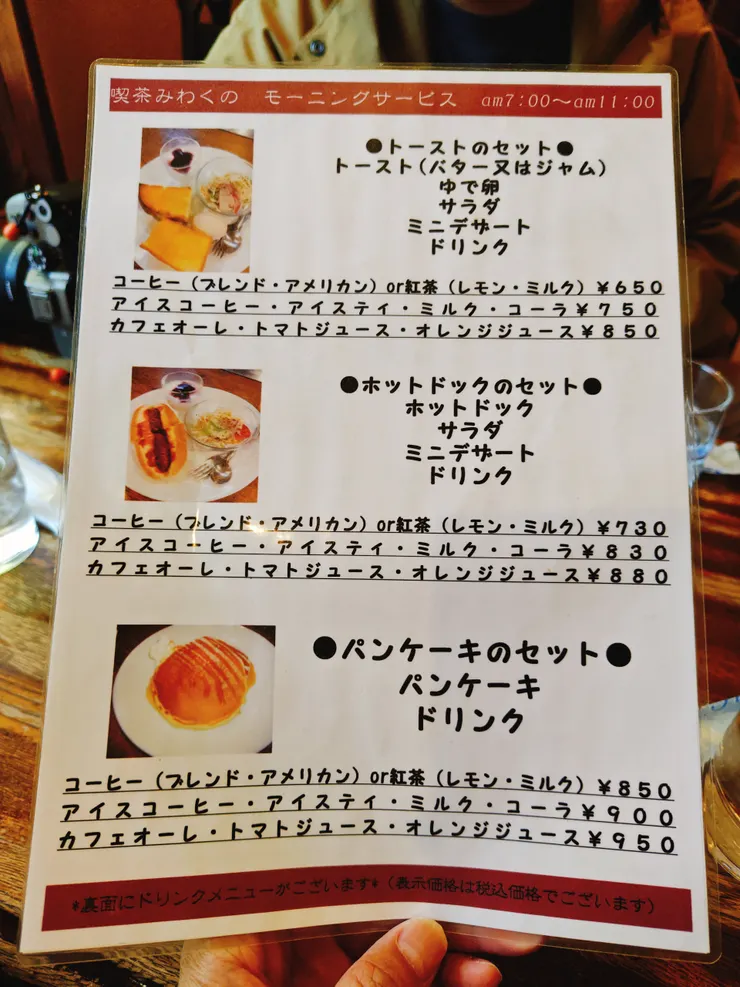 喫茶みわくの モーニングサービス am7:00～am11:00
●トーストのセット●
トースト(バター又はジャム)
ゆで卵
サラダ
ミニデザート
ドリンク
コーヒー（ブレンド・アメリカン）or紅茶（レモン・ミルク）￥６５０
アイスコーヒー・アイスティ・ミルク・コーラ￥７５０
カフェオーレ・トマトジュース・オレンジジュース￥８５０
●ホットドックのセット●
ホットドック
サラダ
ミニデザート
ドリンク
コーヒー（ブレンド・アメリカン）or紅茶（レモン・ミルク）￥７３０
アイスコーヒー・アイスティ・ミルク・コーラ￥８３０
カフェオーレ・トマトジュース・オレンジジュース￥８８０
●パンケーキのセット●
パンケーキ
ドリンク
コーヒー（ブレンド・アメリカン）or紅茶（レモン・ミルク）￥８５０
アイスコーヒー・アイスティ・ミルク・コーラ￥９００
カフェオーレ・トマトジュース・オレンジジュース￥９５０
*裏面にドリンクメニューがございます*（表示価格は税込価格でございます）